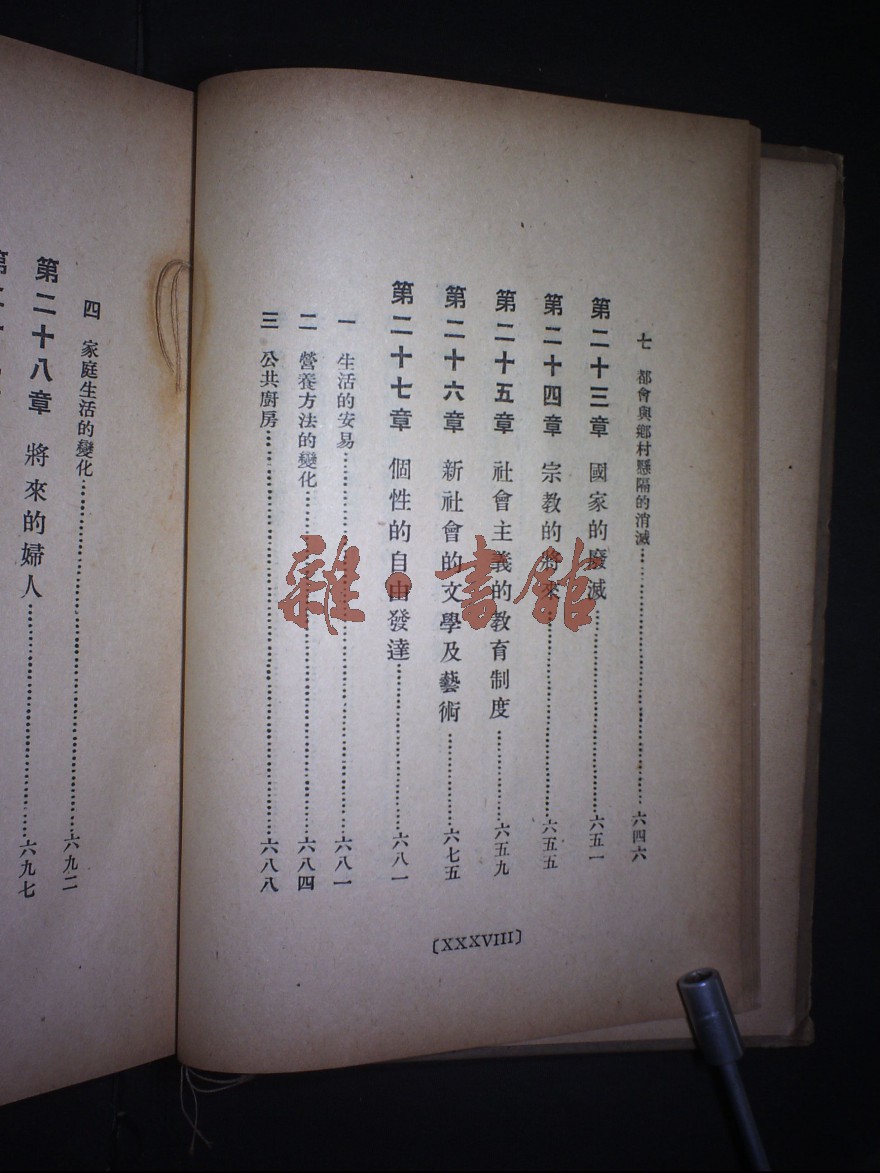 七 都會與鄉村懸隔的消滅……六四六
第二十三章 國家的廢滅……六五一
第二十四章 宗教的將來……六五五
第二十五章 社會主義的教育制度……六五九
第二十六章 新社會的文學及藝術……六七五
第二十七章 個性的自由發達……六八一
一 生活的安易……六八一
二 營養方法的變化……六八四
三 公共廚房……六八八
〔XXXVIII〕
四 家庭生活的變化……六九二
第二十八章 將來的婦人……六九七
雜·書館